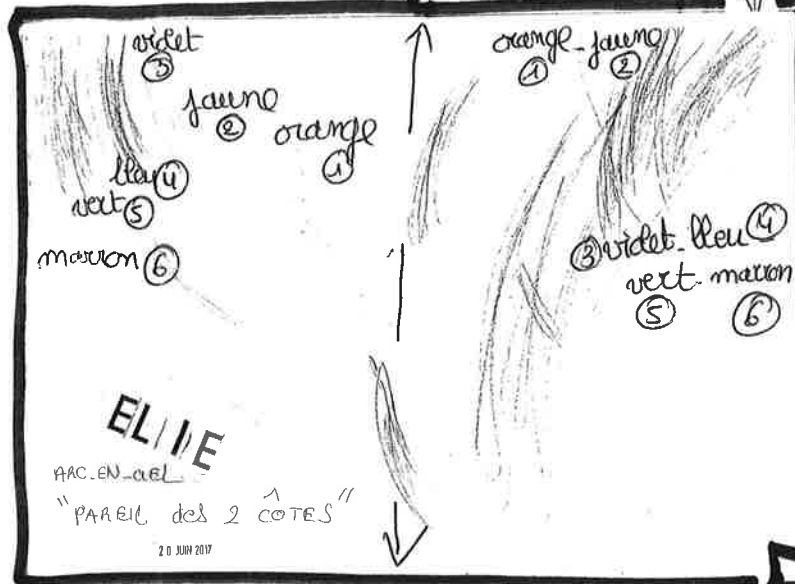 violet
③
jaune
②
orange
①
bleu ④
vert ⑤
marron ⑥
orange - jaune
① ②
③ violet - bleu ④
vert - marron
⑤ ⑥
ELIE
ARC-EN-CIEL
"PAREIL des 2 CÔTES"
20 JUIN 2017